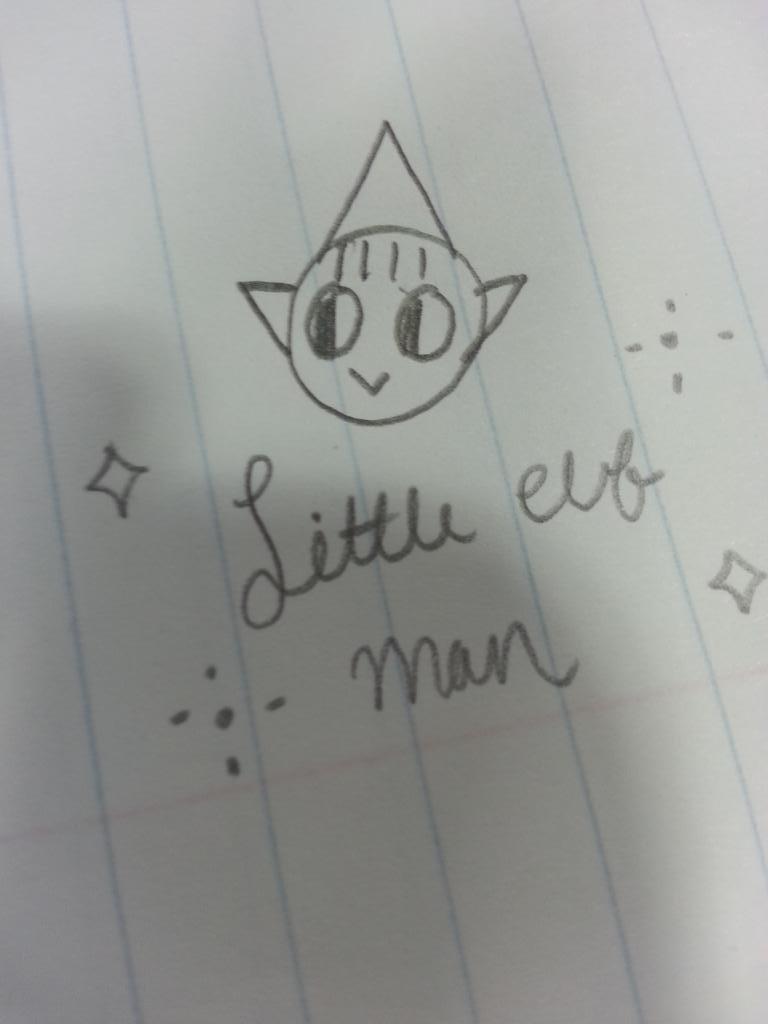 Little elf
man